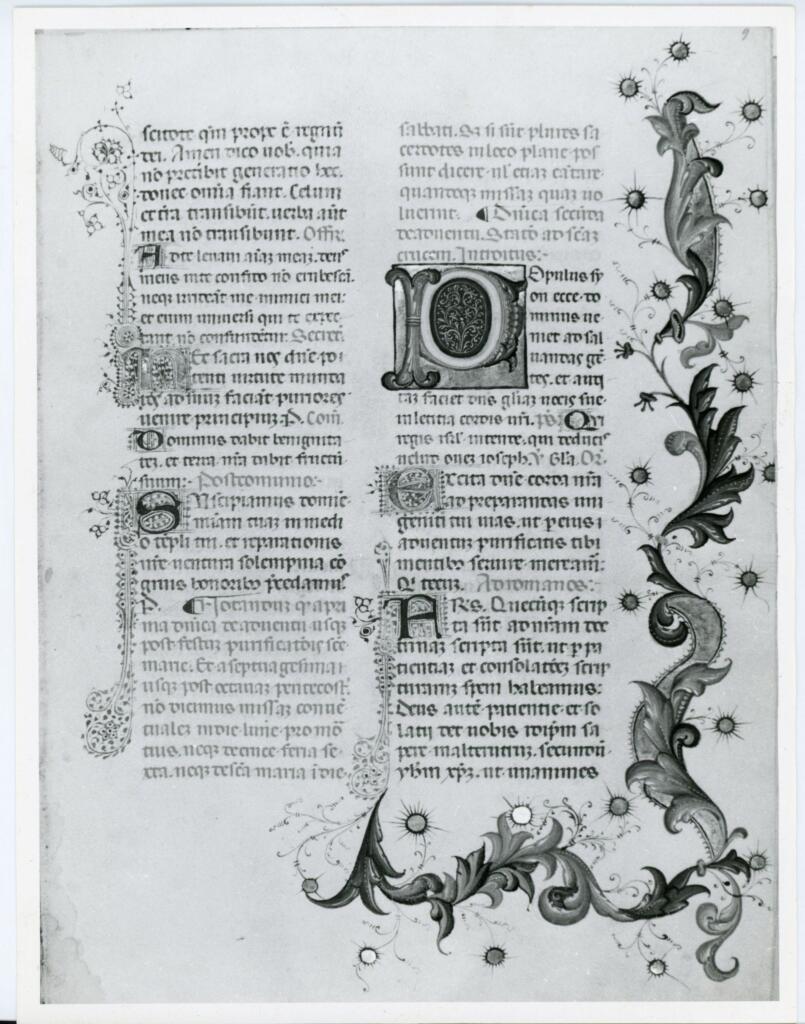 9
scitote q̃m prope ẽ regnũ
dei. Amen dico uob. quia
no preteribit generatio hec.
donec omnia fiant. Celum
et tra transibũt. uerba aũt
mea nõ transibunt. Offiẽ.
Ad te leuaui aĩaz meaz. deus
meus in te confido nõ erubescã.
neqz irrideãt me inimici mei:
et enim uniuersi qui te expec
tant nõ confundentur. Secreta.
Hec sacra nos dñe po
tenti uirtute munda
tos ad suuz faciãt puriores
uenire principium. P. Com̃.
Dominus dabit benignita
tez. et terra nr̃a dabit fructũ
suum: Postcomunio:
Suscipiamus domine
miam tuaz in medi
o tẽpli tui. et reparationis
nr̃e uentura solempnia cõ
gruis honoribꝰ p̃cedamus
P. Notandum ꝙ a pri
ma dñica de aduentu usqz
post festũ purificatiõis sc̃e
marie. Et a septuagesima
usqz post octauaz pentecost̃.
nõ dicimus missaz conuẽ
tualez in die lune pro mor
tuis. neqz decnice feria se
xta. neqz de sc̃a maria ĩ die
sabbati. Sz si sũt plures sa
cerdotes in loco plane pos
sunt dicere. ul etiaz cãtare.
quantcqz missaz quaz uo
luerint. Dñica secũda
de aduentu. Statõ ad sc̃az
crucem. Introitus:
Populus sy
on ecce do
minus ue
niet ad sal
uandas gẽ
tes. et audi
taz faciet dñs gl̃iaz uocis sue
in letitia cordis ur̃i. ps̃. Qui
regis isl̃ intende. qui deducis
uelud ouez ioseph. V. Gl̃a. Or̃.
Excita dñe corda nr̃a
ad preparandas uni
geniti tui uias. ut p eius
aduentũ purificatis tibi
mentibꝰ seruire mereamr̃.
Qi tecuz. Ad romanos:
Fr̃s. Quecũqz scrip
ta sũt ad nr̃am doc
trinaz scripta sũt. ut p pa
tientiaz et consolatõez scrip
turarum spem habeamus:
Deus autẽ patientie et so
latii det uobis idip̃m sa
pere in alterutruz. secundũ
yhm xp̃z. ut unanimes